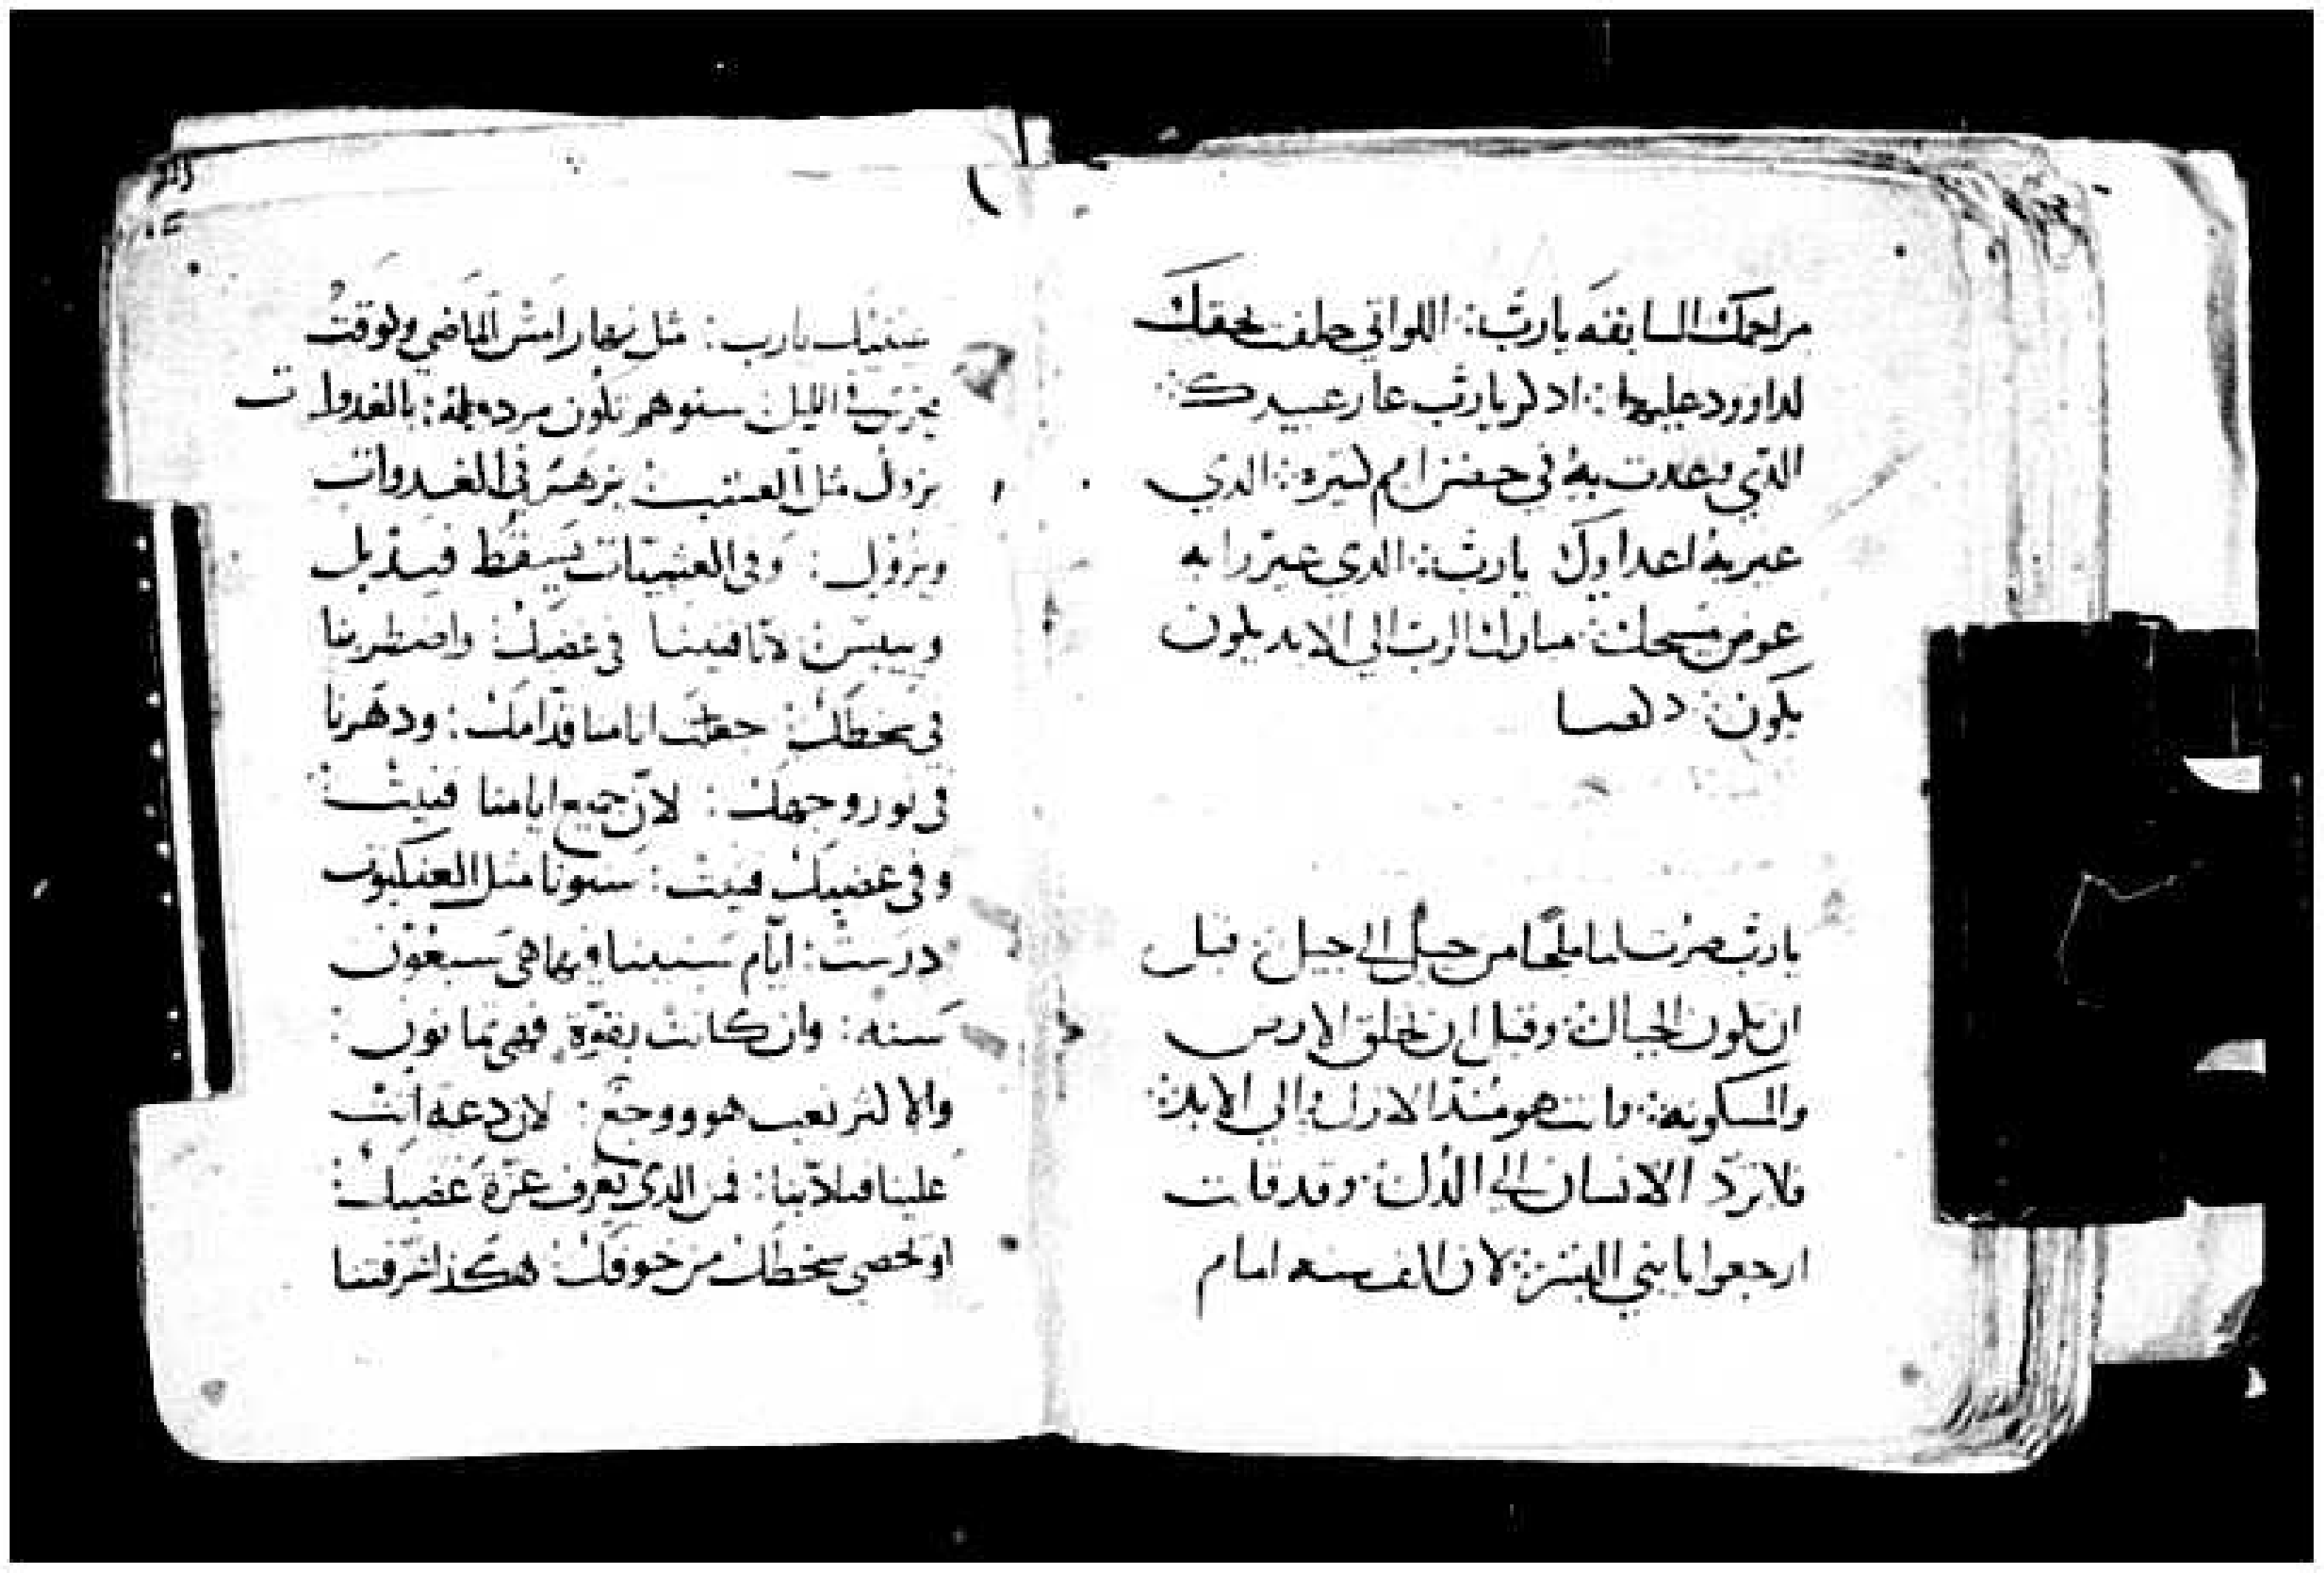 مراحمك السابقه يارب: اللواتي حلفت بحقك
لداوود عليها: ادكر يارب عار عبيدك:
الذي وعدت به في حضن امم كتيره: الدي
عير به اعداوك يارب: الدي عيروا به
عوض مسيحك: مبارك الرب الي الابد يكون
يكون:
يارب صرت لنا ملجا من جيل الي جيل: قبل
ان يكون الجبال: وقبل ان تخلق الارض
والمسكونه: وانت هو منذ الازل والي الابد:
فلا ترد الانسان الي الذل: وقد قلت
ارجعوا يا بني البشر: لان الف سنه امام
عينيك يارب: مثل نهار امس الماضي وكوقت
محرس الليل: سنوهم تكون مردوله: بالغدوات
يزول مثل العشب: يزهر في الغدوات
ويزول: وفي العشيات يسقط فيذبل
وييبس: لانا فنينا في غضبك: واضطربنا
في سخطك: جعلت اثامنا قدامك: ودهرنا
في نور وجهك: لان جميع ايامنا فنيت:
وفي غضبك فنيت: سنونا مثل العنكبوت
درست: ايام سنيننا فيها هي سبعون
سنه: وان كانت بقوة فهي ثمانون:
والاكثر تعب هو ووجع: لان دعه اتت
علينا فتادبنا: فمن الذي يعرف عزة غضبك:
او يحصي سخطك من خوفك: هكذا عرفتنا